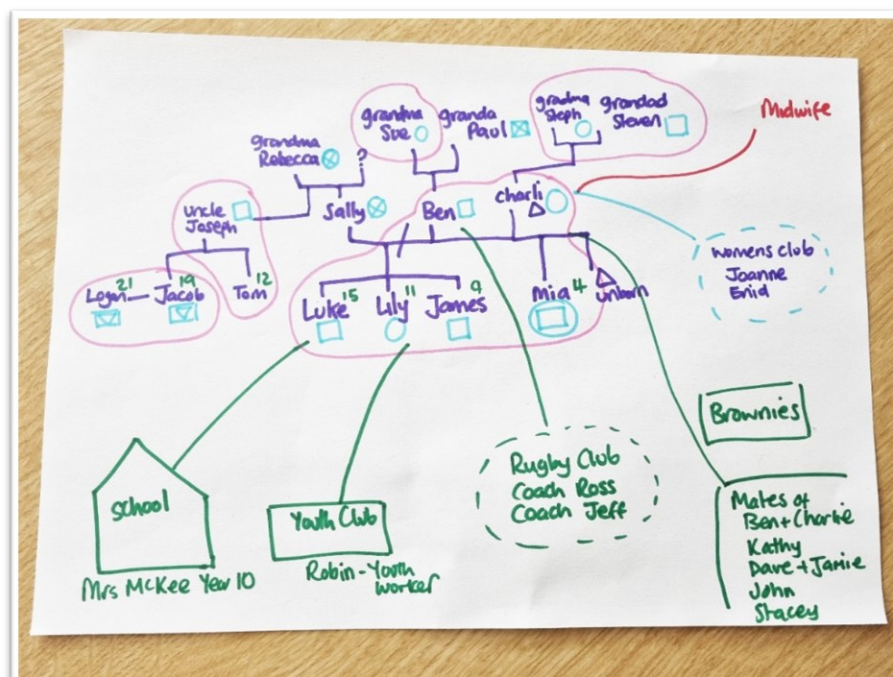 grandma
Sue
granda
Paul
gradma
Steph
grandad
Steven
Midwife
grandma
Rebecca
?
uncle
Joseph
Sally
Ben
charli
womens club
Joanne
Enid
Logan 21
Jacob 19
Tom 12
Luke 15
Lily 11
James 9
Mia 4
unborn
Brownies
School
Mrs McKee Year 10
Youth Club
Robin-Youth
worker
Rugby Club
Coach Ross
Coach Jeff
Mates of
Ben+Charlie
Kathy
Dave+Jamie
John
Stacey